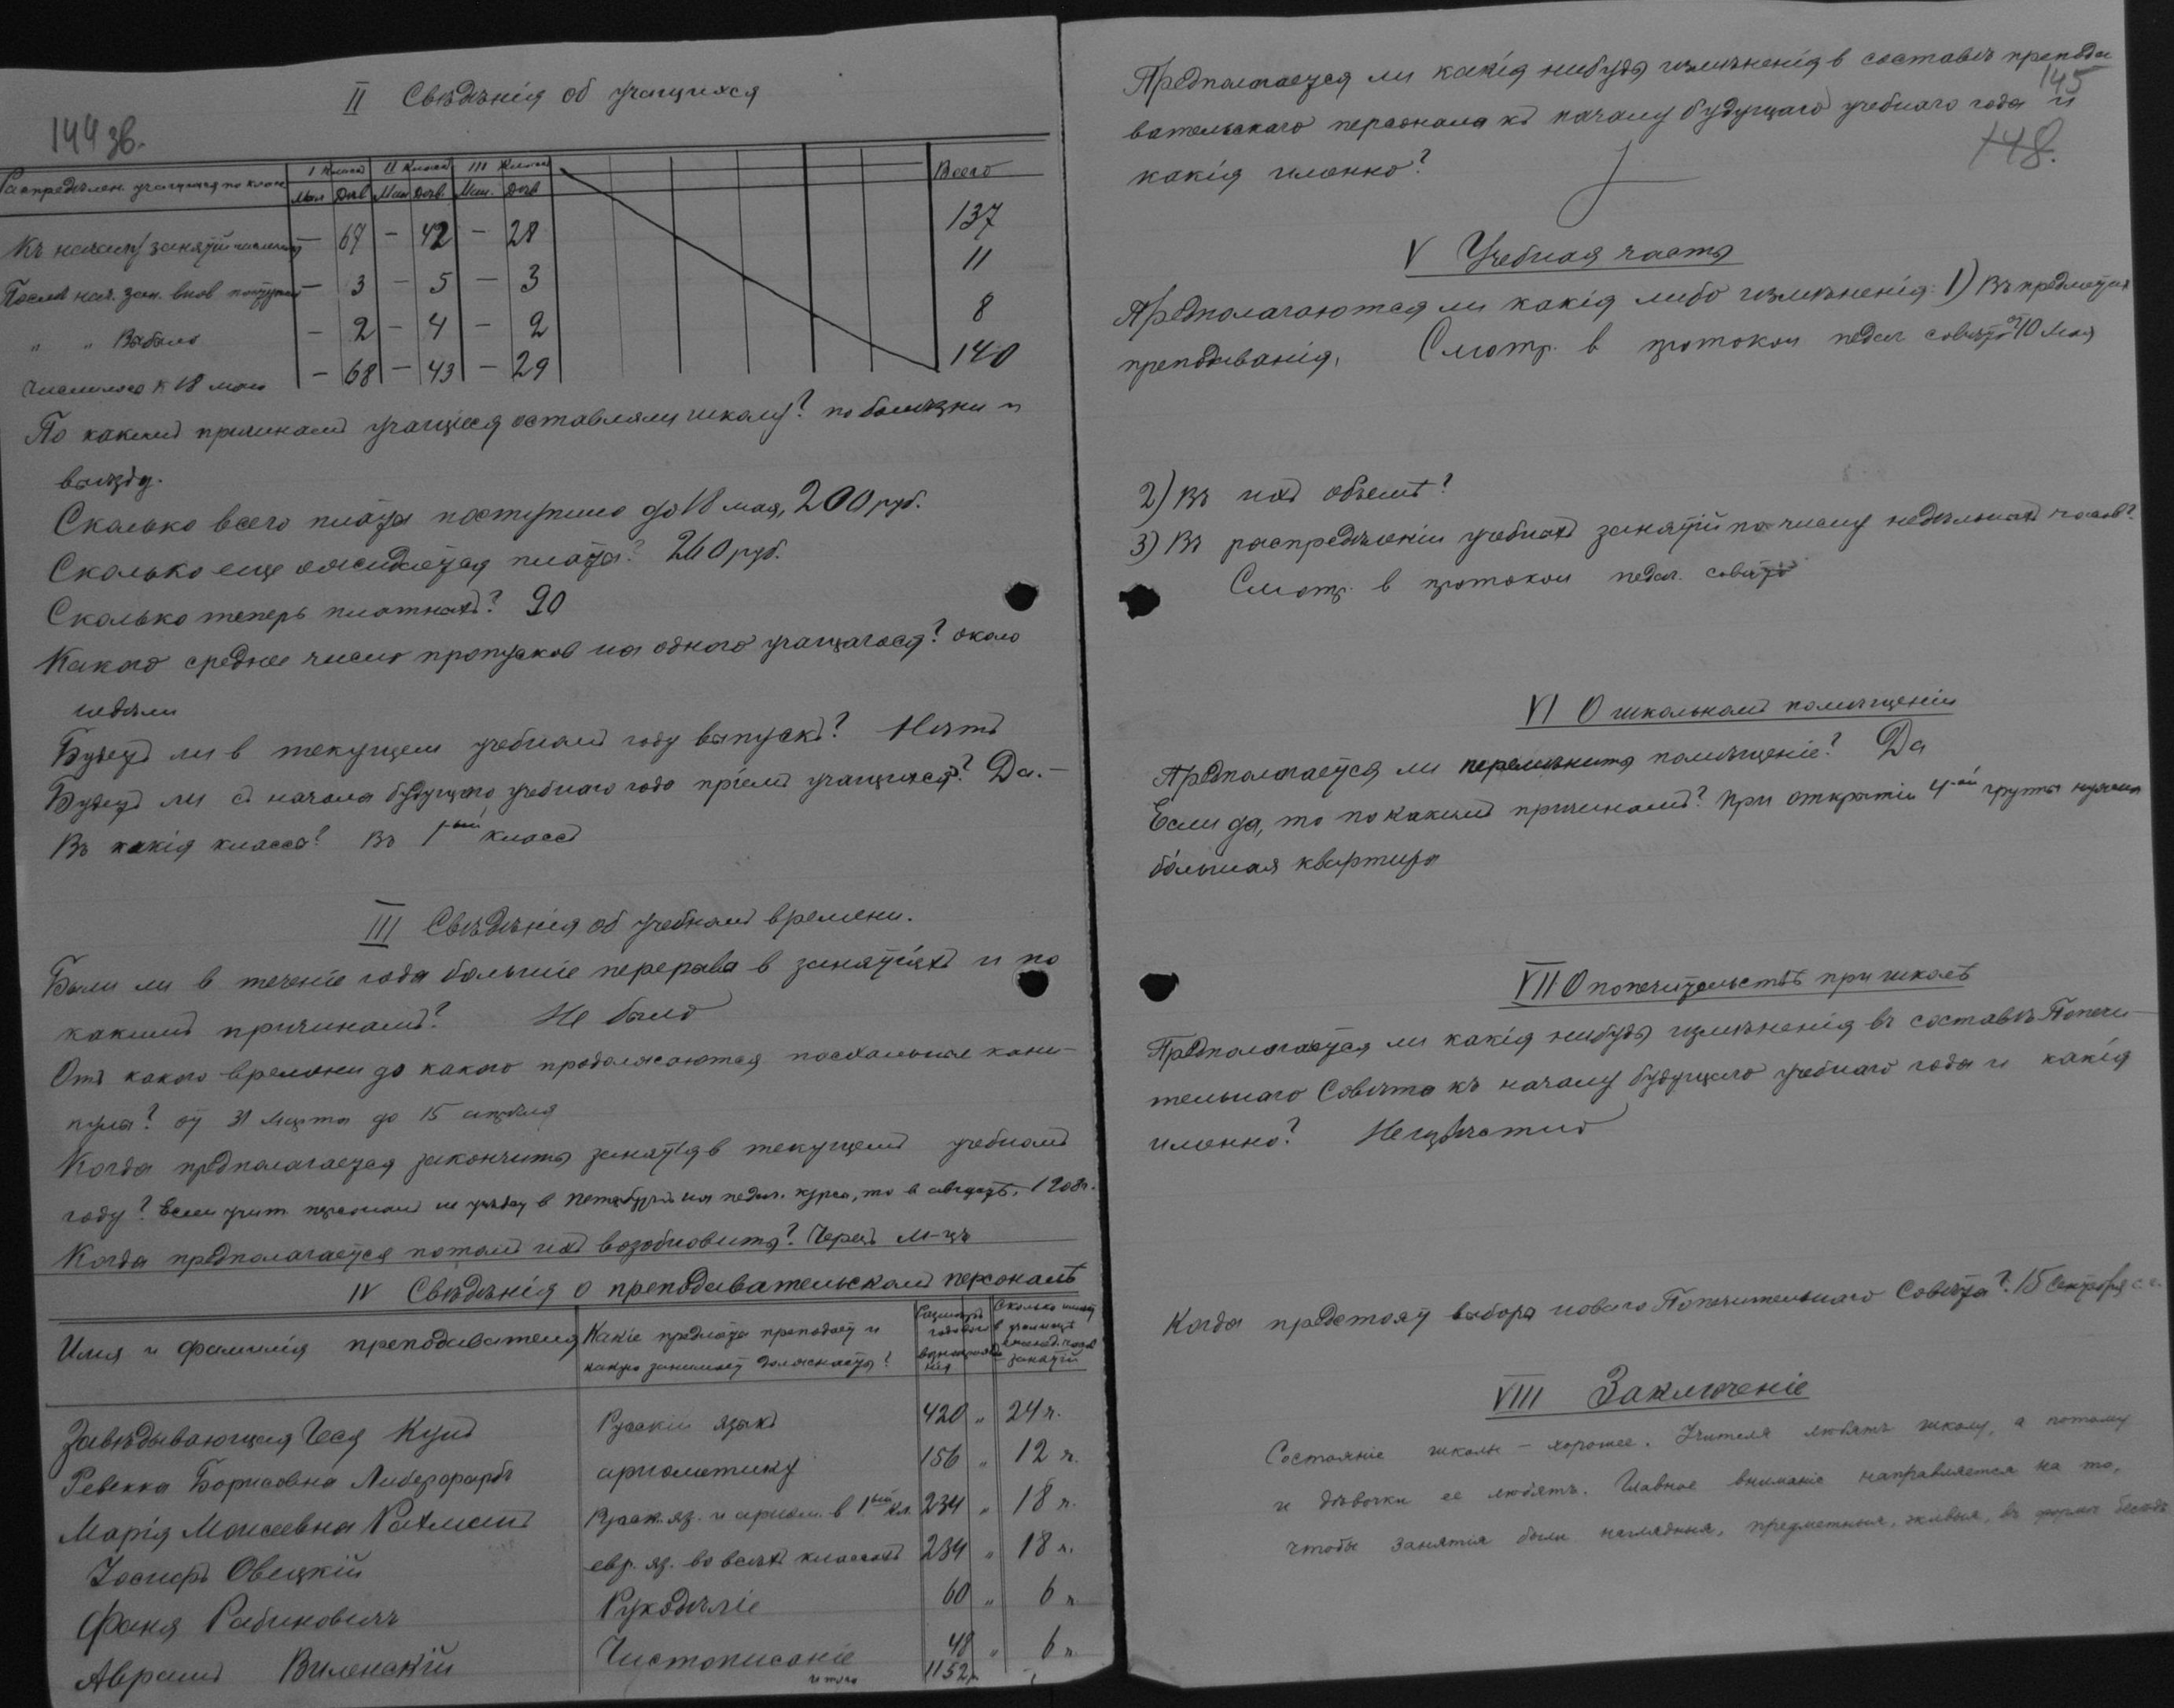 II Свѣдѣнія об учащихся
144 зв.
Распредѣлен. учащихся по клас. I Классъ II Классъ III Классъ Всего
Мал Дѣв Мал Дѣв. Мал. Дѣв
Къ началу занятій числилось — 67 — 42 — 28 137
Послѣ нач. зан. внов поступило — 3 — 5 — 3 11
" " Выбыло — 2 — 4 — 2 8
Числилось к 18 мая — 68 — 43 — 29 140
По какимъ причинамъ учащіеся оставляли школу? по болѣзни и
выѣзду.
Сколько всего платы поступило до 18 мая, 200 руб.
Сколько еще ожидается платы? 260 руб.
Сколько теперь платныхъ? 90
Каково среднее число пропусков на одного учащагося? около
недѣли
Будетъ ли в текущем учебномъ году выпускъ? Нѣтъ
Будетъ ли съ начала будущаго учебнаго года пріемъ учащихся? Да. —
Въ какія классы? Въ 1-ый классъ
III Свѣдѣнія об учебномъ времени.
Были ли в теченіе года большіе перерывы в занятіяхъ и по
какимъ причинамъ? Не было
Отъ какого времени до какого продолжаются пасхальныя кани-
кулы? от 31 Марта до 15 апрѣля
Когда предполагается закончить занятія в текущемъ учебномъ
году? Если учит. персонал не уѣдет в Петербургъ на педаг. курсы, то в августѣ, 1908 г.
Когда предполагается потомъ ихъ возобновить? Черезъ м-цъ
IV Свѣдѣнія о преподавательскомъ персоналѣ
Имя и фамилія преподавателя Какіе предметы преподает и Размѣръ Сколько имѣет
какую занимает должность? годового вознагражденія в училищѣ еженед. часов занятій
Завѣдывающая Чеся Кунъ Русскій языкъ 420 " 24 ч.
Ревекка Борисовна Либерфарбъ арифметику 156 " 12 ч.
Марія Моисеевна Рахманъ Русск. яз. и арифм. в 1-ый кл. 234 " 18 ч.
Іосифъ Овецкій евр. яз. во всѣхъ классахъ 234 " 18 ч.
Фаня Рабиновичъ Рукодѣліе 60 " 6 ч
Аврамъ Виленскій Чистописаніе 48 " 6 ч
итого 1152 р.
Предполагается ли какія нибудь измѣненія в составѣ препода
145
вательскаго персонала къ началу будущаго учебнаго года и
148.
какія именно?
V Учебная часть
Предполагаются ли какія либо измѣненія: 1) Въ предметах
преподаванія, Смотр. в протокол педаг совѣта от 10 Мая
2) Въ ихъ объемѣ?
3) Въ распредѣленіи учебныхъ занятій по числу недѣльныхъ часов?
Смотр. в протокол педаг. совѣта
VI О школьномъ помѣщеніи
Предполагается ли перемѣнить помѣщеніе? Да
Если да, то по какимъ причинамъ? При открытіи 4-ой группы нужна
бо́льшая квартира
VII О попечительствѣ при школѣ
Предполагается ли какія нибудь измѣненія въ составѣ Попечи-
тельнаго Совѣта къ началу будущаго учебнаго года и какія
именно? Неизвѣстно
Когда предстоят выборы новаго Попечительнаго Совѣта? 15 Сентября с. г.
VIII Заключеніе
Состояніе школы — хорошее. Учителя любятъ школу, а потому
и дѣвочки ее любятъ. Главное вниманіе направляется на то,
чтобы занятія были наглядныя, предметныя, живыя, въ формѣ бесѣдъ